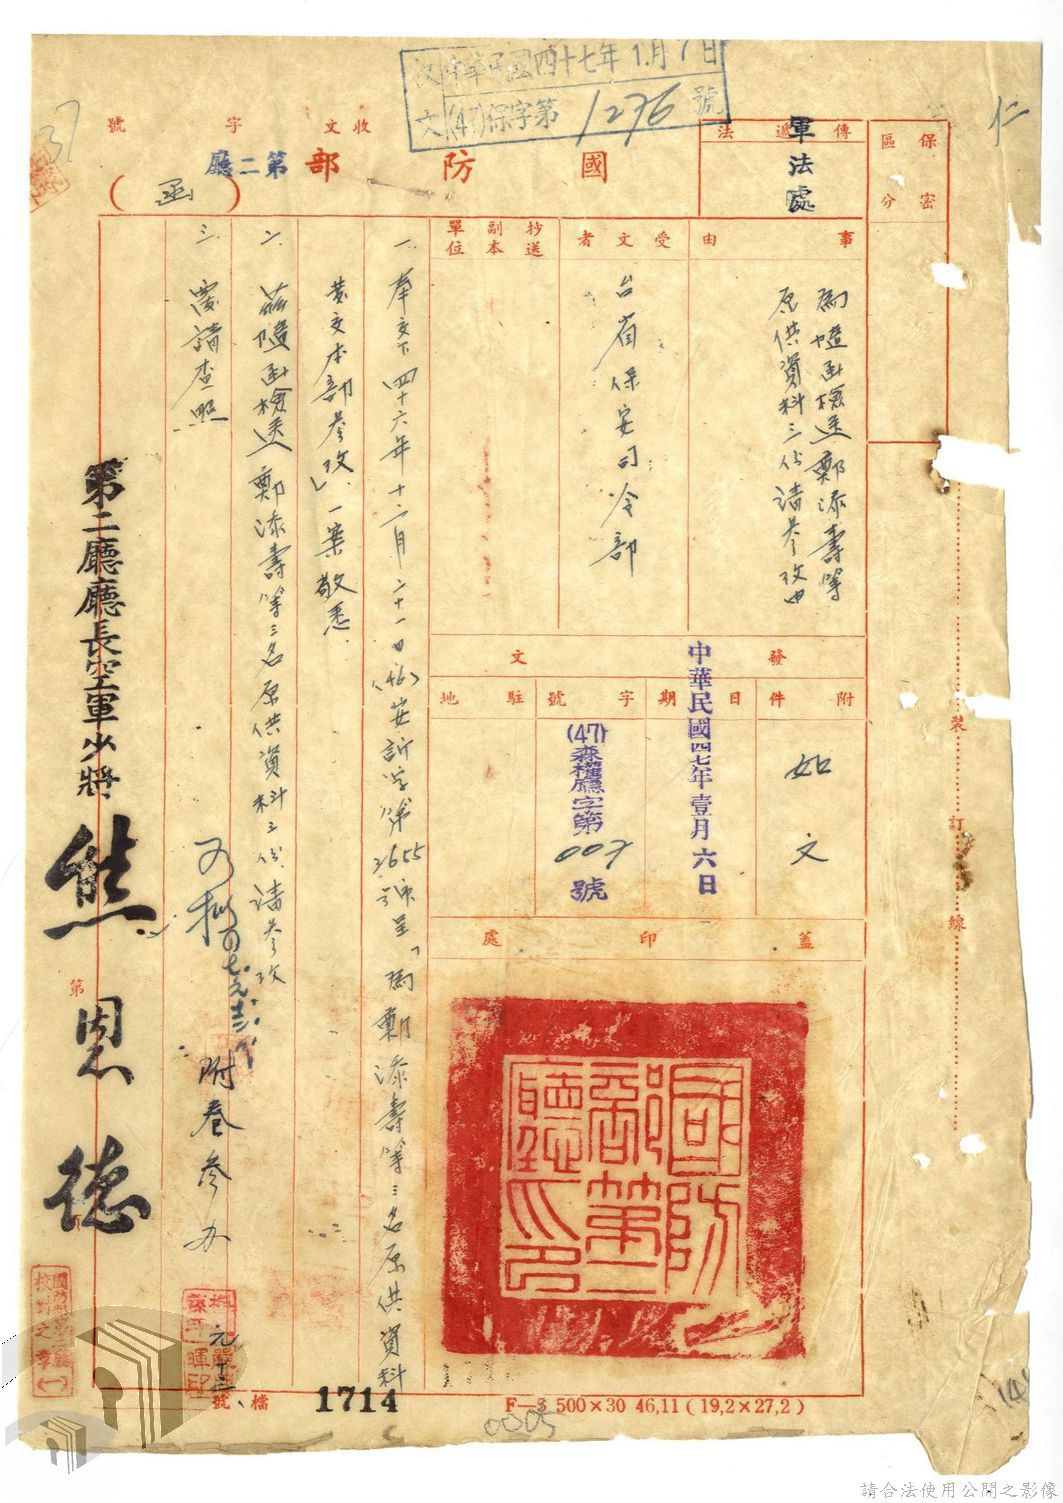 收 中華民國四十七年1月7日
文 (47)保字第1276號
收文 字 號
國防部第二廳
(函)
傳遞法
軍法處
保密
區分
事由
為隨函檢送鄭添壽等
原供資料三份請參攷由
受文者
台省保安司令部
抄送
副本
單位
發文
附件
如文
日期
中華民國四七年壹月六日
字號
(47)
森權廳字第
007
號
駐地
蓋印處
國防部第二廳印
一、奉交下四十六年十二月二十一日(46)安訢字第2655號呈「為鄭添壽等三名原供資料
黃文本部參攷」一案敬悉
二、茲隨函檢送鄭添壽等三名原供資料三份、請參攷
三、復請查照
附卷參办
元 十三
第二廳廳長空軍少將
熊恩德
第
裝
訂
線
國防部第二廳
校對之章(一)
檔號
1714
F—3 500×30 46,11(19,2×27,2)
0005
37
仁
請合法使用公開之影像